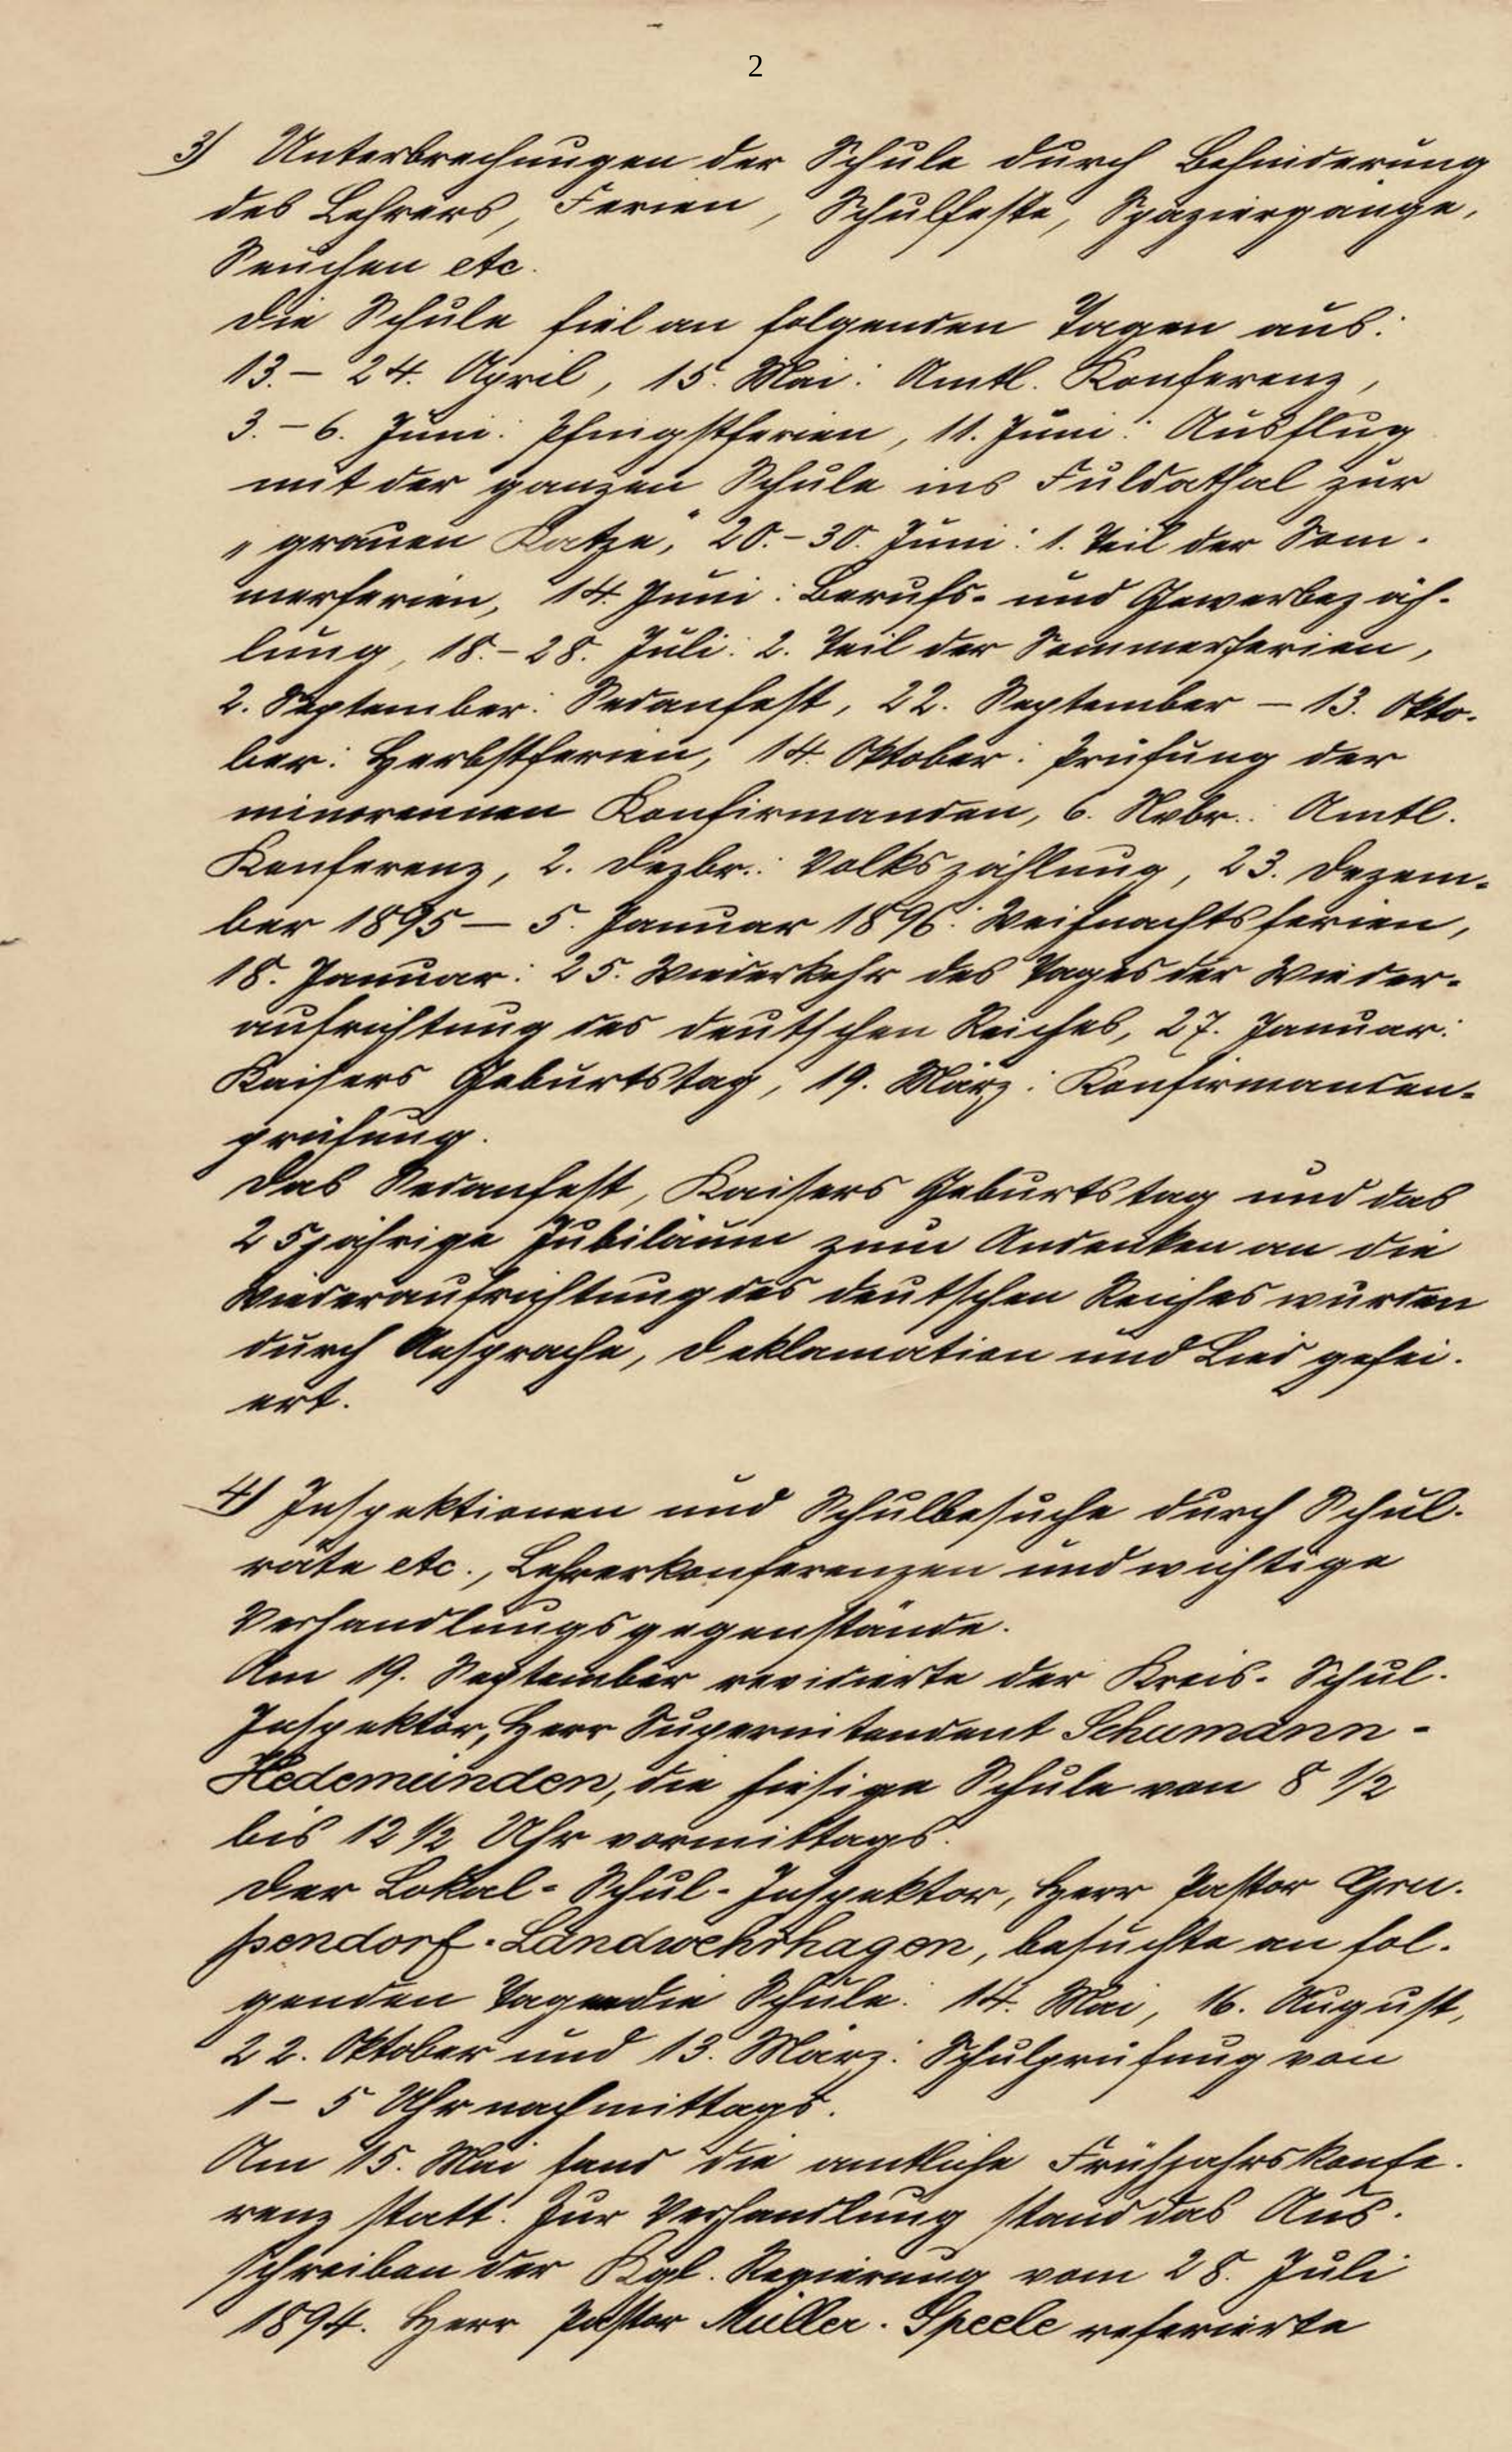 2
3) Unterbrechungen der Schule durch Behinderung
des Lehrers, Ferien, Schulfeste, Spaziergänge,
Seuchen etc.
Die Schule fiel an folgenden Tagen aus:
13.– 24. April, 15. Mai: Amtl. Konferenz,
3.– 6. Juni: Pfingstferien, 11. Juni: Ausflug
mit der ganzen Schule ins Fuldathal zur
„grauen Katze", 20.–30. Juni: 1. Teil der Som-
merferien, 14. Juni: Berufs- und Gewerbezäh-
lung, 18.–28. Juli: 2. Teil der Sommerferien,
2. September: Sedanfest, 22. September – 13. Okto-
ber: Herbstferien, 14. Oktober: Prüfung der
minorennen Konfirmanden, 6. Nvbr.: Amtl.
Konferenz, 2. Dezbr.: Volkszählung, 23. Dezem-
ber 1895 – 5. Januar 1896: Weihnachtsferien,
18. Januar: 25. Wiederkehr des Tages der Wieder-
aufrichtung des deutschen Reiches, 27. Januar:
Kaisers Geburtstag, 19. März: Konfirmanden-
prüfung.
Das Sedanfest, Kaisers Geburtstag und das
25jährige Jubiläum zum Andenken an die
Wiederaufrichtung des deutschen Reiches wurden
durch Ansprache, Deklamation und Lied gefei-
ert.
4) Inspektionen und Schulbesuche durch Schul-
räte etc., Lehrerkonferenzen und wichtige
Verhandlungsgegenstände.
Am 19. September revidierte der Kreis-Schul-
Inspektor, Herr Superintendent Schumann-
Hedemünden, die hiesige Schule von 8 1/2
bis 12 1/2 Uhr vormittags.
Der Lokal-Schul-Inspektor, Herr Pastor Gru-
pendorf-Landwehrhagen, besuchte an fol-
genden Tagen die Schule: 14. Mai, 16. August,
22. Oktober und 13. März: Schulprüfung von
1 – 5 Uhr nachmittags.
Am 15. Mai fand die amtliche Frühjahrskonfe-
renz statt. Zur Verhandlung stand das Aus-
schreiben der Kgl. Regierung vom 28. Juli
1894. Herr Pastor Müller-Speele referierte